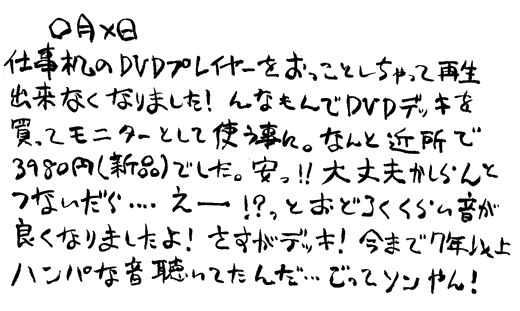 〇月×日
仕事机のDVDプレイヤーをおっことしちゃって再生
出来なくなりました！んなもんでDVDデッキを
買ってモニターとして使う事に。なんと近所で
3980円(新品)でした。安っ!!大丈夫かしらんと
つないだら‥‥えー!?っとおどろくくらい音が
良くなりましたよ！さすがデッキ！今まで7年以上
ハンパな音聴いてたんだ…ごってソンやん！